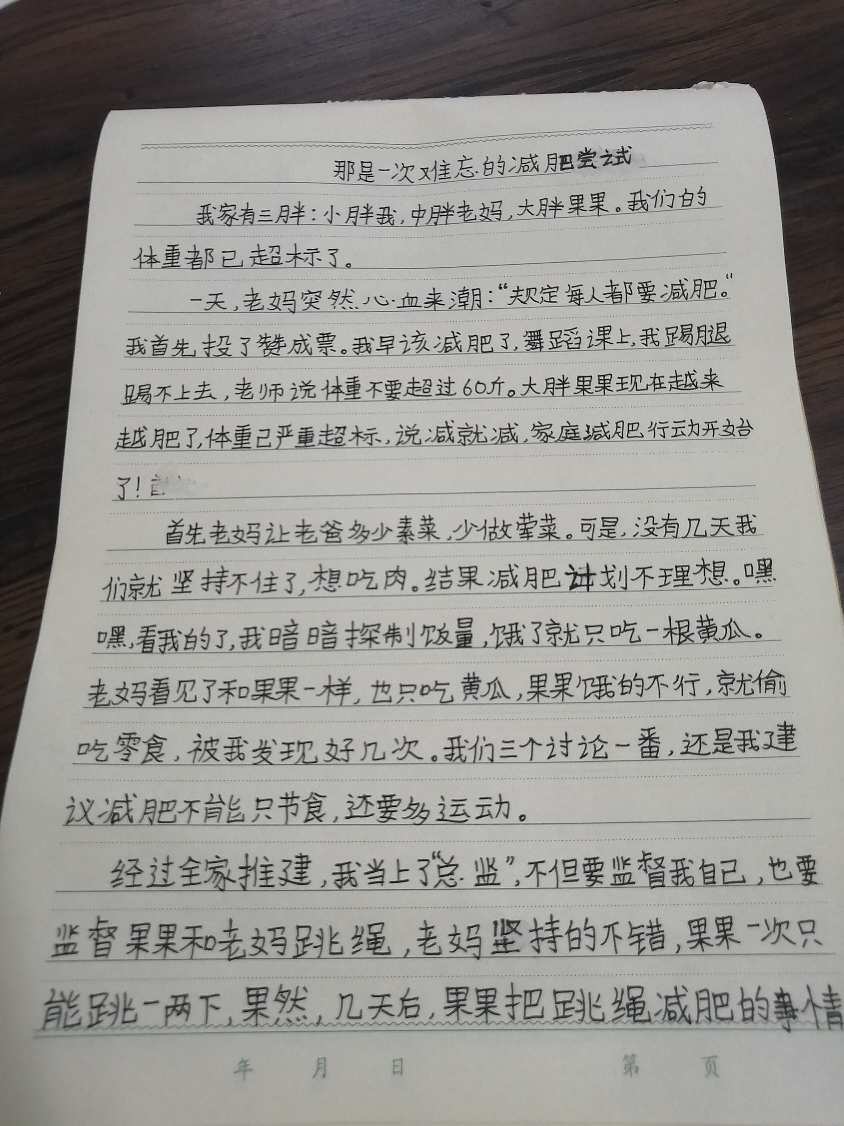 那是一次难忘的减肥尝试
我家有三胖：小胖我，中胖老妈，大胖果果。我们的
体重都已超标了。
一天，老妈突然心血来潮：“规定每人都要减肥。”
我首先投了赞成票。我早该减肥了，舞蹈课上，我踢腿
踢不上去，老师说体重不要超过60斤。大胖果果现在越来
越肥了，体重已严重超标，说减就减，家庭减肥行动开始
了！
首先老妈让老爸多少素菜，少做荤菜。可是，没有几天我
们就坚持不住了，想吃肉。结果减肥计划不理想。嘿
嘿，看我的了，我暗暗控制饭量，饿了就只吃一根黄瓜。
老妈看见了和果果一样，也只吃黄瓜，果果饿的不行，就偷
吃零食，被我发现好几次。我们三个讨论一番，还是我建
议减肥不能只节食，还要多运动。
经过全家推建，我当上了“总监”，不但要监督我自己，也要
监督果果和老妈跳绳，老妈坚持的不错，果果一次只
能跳一两下，果然，几天后，果果把跳绳减肥的事情
年 月 日 第 页